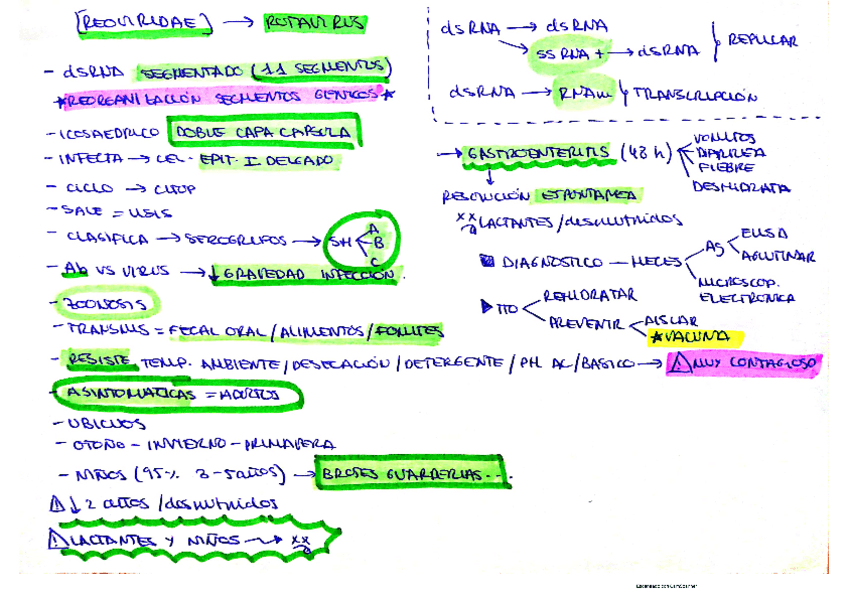 [REOVIRIDAE] → ROTAVIRUS
- dsRNA SEGMENTADO (11 SEGMENTOS)
*REORGANIZACIÓN SEGMENTOS GÉNICOS*
- ICOSAÉDRICO DOBLE CAPA CÁPSULA
- INFECTA → CEL. EPIT. I. DELGADO
- CICLO → CITOP
- SALE = LISIS
- CLASIFICA → SEROGRUPOS → SH A B C
- Ab VS VIRUS → ↓ GRAVEDAD INFECCIÓN.
- ZOONOSIS
- TRANSMIS = FECAL ORAL / ALIMENTOS / FOMITES
- RESISTE TEMP. AMBIENTE / DESECACIÓN / DETERGENTE / PH AC/BÁSICO → ⚠ MUY CONTAGIOSO
- ASINTOMATICAS = ADULTOS
- UBICUOS
- OTOÑO - INVIERNO - PRIMAVERA
- NIÑOS (95% 3-5 años) → BROTES GUARDERIAS...
⚠ ↓ 2 años / desnutridos
⚠ LACTANTES Y NIÑOS → xx
dsRNA → dsRNA
ssRNA+ → dsRNA } REPLICAR
dsRNA → RNAm } TRANSCRIPCIÓN
→ GASTROENTERITIS (48 h)
VOMITOS
DIARREA
FIEBRE
DESHIDRATA
RESOLUCIÓN ESPONTANEA
xx LACTANTES / desnutridos
DIAGNOSTICO — HECES
Ag
ELISA
AGLUTINAR
MICROSCOP. ELECTRÓNICA
TTO
REHIDRATAR
PREVENIR
AISLAR
*VACUNA